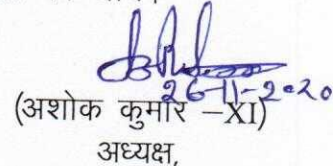 26-11-2020
(अशोक कुमार –XI)
अध्यक्ष,